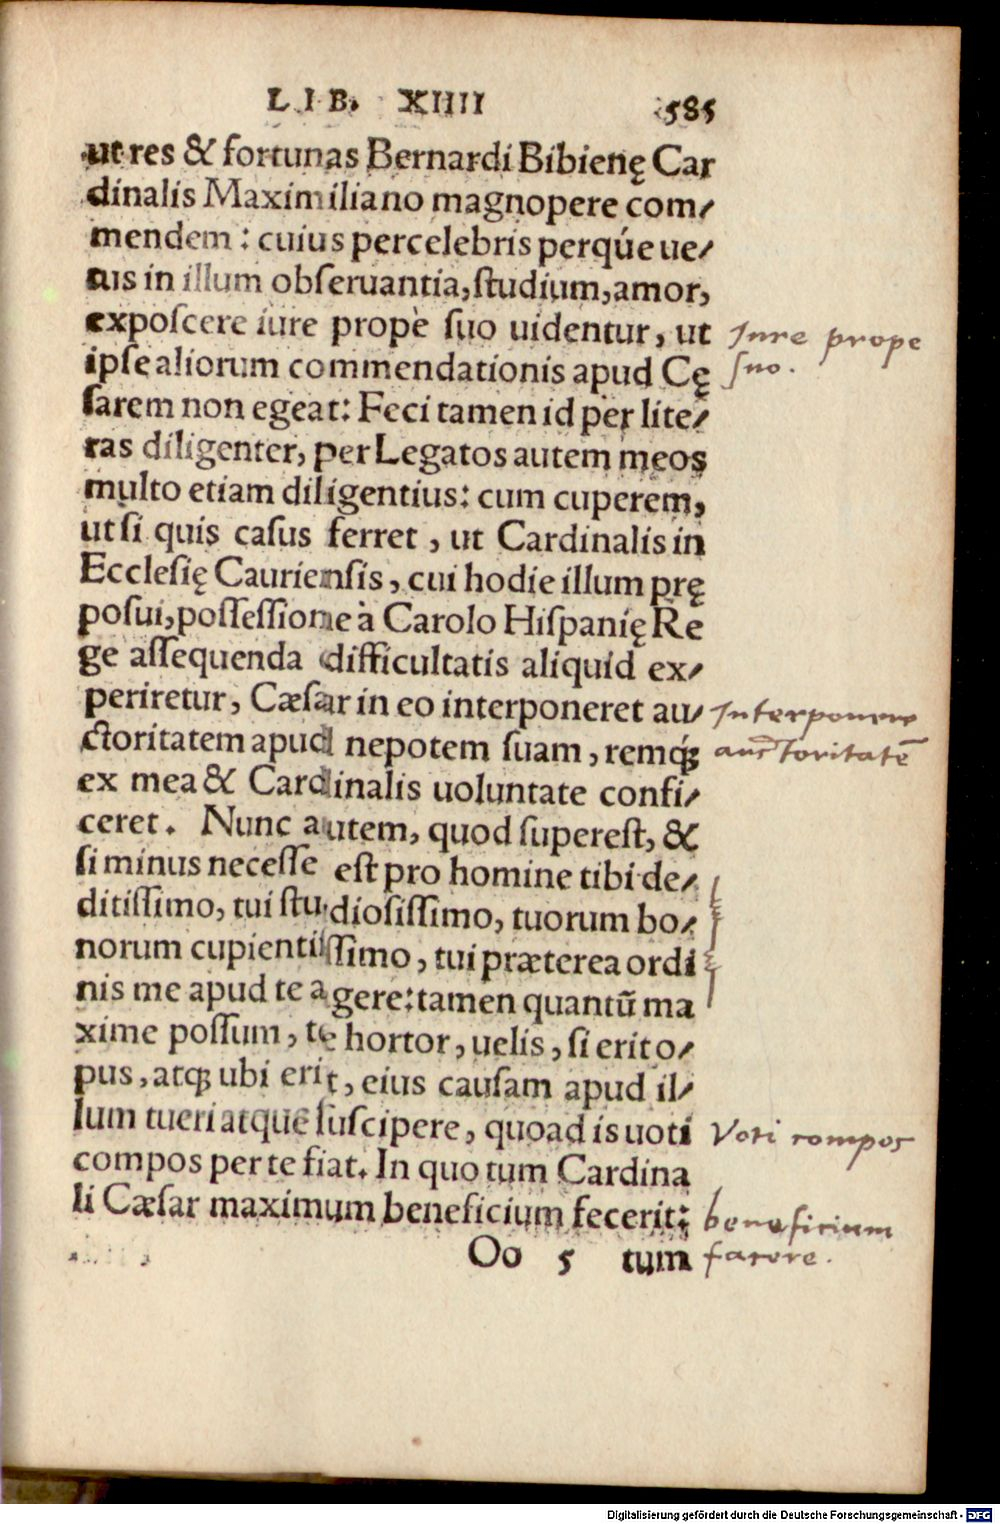 LIB. XIIII 585
ut res & fortunas Bernardi Bibienę Car
dinalis Maximiliano magnopere com/
mendem: cuius percelebris perqúe ue/
tus in illum obseruantia, studium, amor,
exposcere iure propè suo uidentur, ut
ipse aliorum commendationis apud Cę
sarem non egeat: Feci tamen id per lite/
ras diligenter, per Legatos autem meos
multo etiam diligentius: cum cuperem,
ut si quis casus ferret, ut Cardinalis in
Ecclesię Cauriensis, cui hodie illum prę
posui, possessione à Carolo Hispanię Re
ge assequenda difficultatis aliquid ex/
periretur, Cæsar in eo interponeret au/
ctoritatem apud nepotem suam, remq́;
ex mea & Cardinalis uoluntate confi/
ceret. Nunc autem, quod superest, &
si minus necesse est pro homine tibi de/
ditissimo, tui studiosissimo, tuorum bo/
norum cupientissimo, tui præterea ordi
nis me apud te agere: tamen quantũ ma
xime possum, te hortor, uelis, si erit o/
pus, atq; ubi erit, eius causam apud il/
lum tueri atque suscipere, quoad is uoti
compos per te fiat. In quo tum Cardina
li Cæsar maximum beneficium fecerit:
Oo 5 tum
Iure prope
suo.
Interponere
auctoritatē
Voti compos
beneficium
facere.
Digitalisierung gefördert durch die Deutsche Forschungsgemeinschaft - DFG